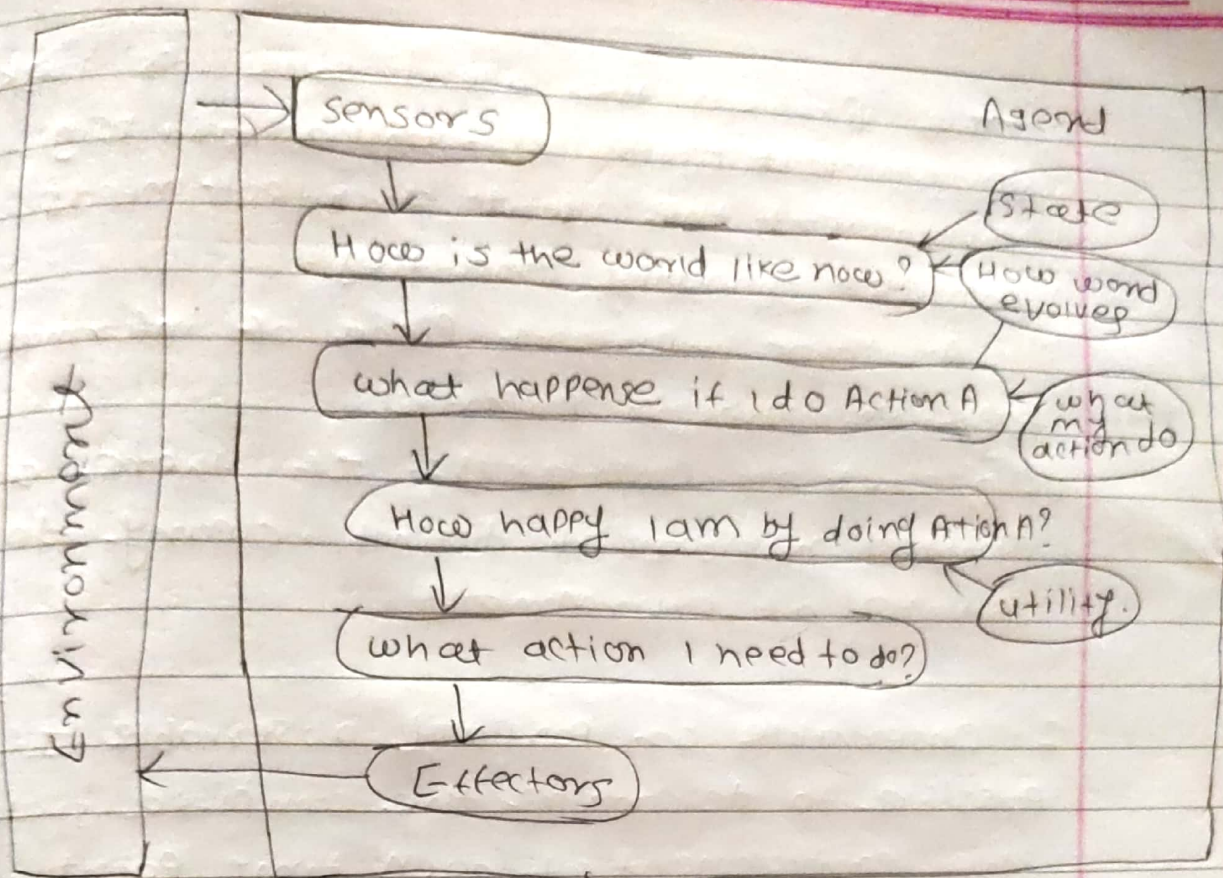 Sensors
Agent
State
How is the world like now?
How word
evolves
what happense if I do Action A
what
my
action do
How happy I am by doing Action A?
utility.
what action I need to do?
Effectors
Environment